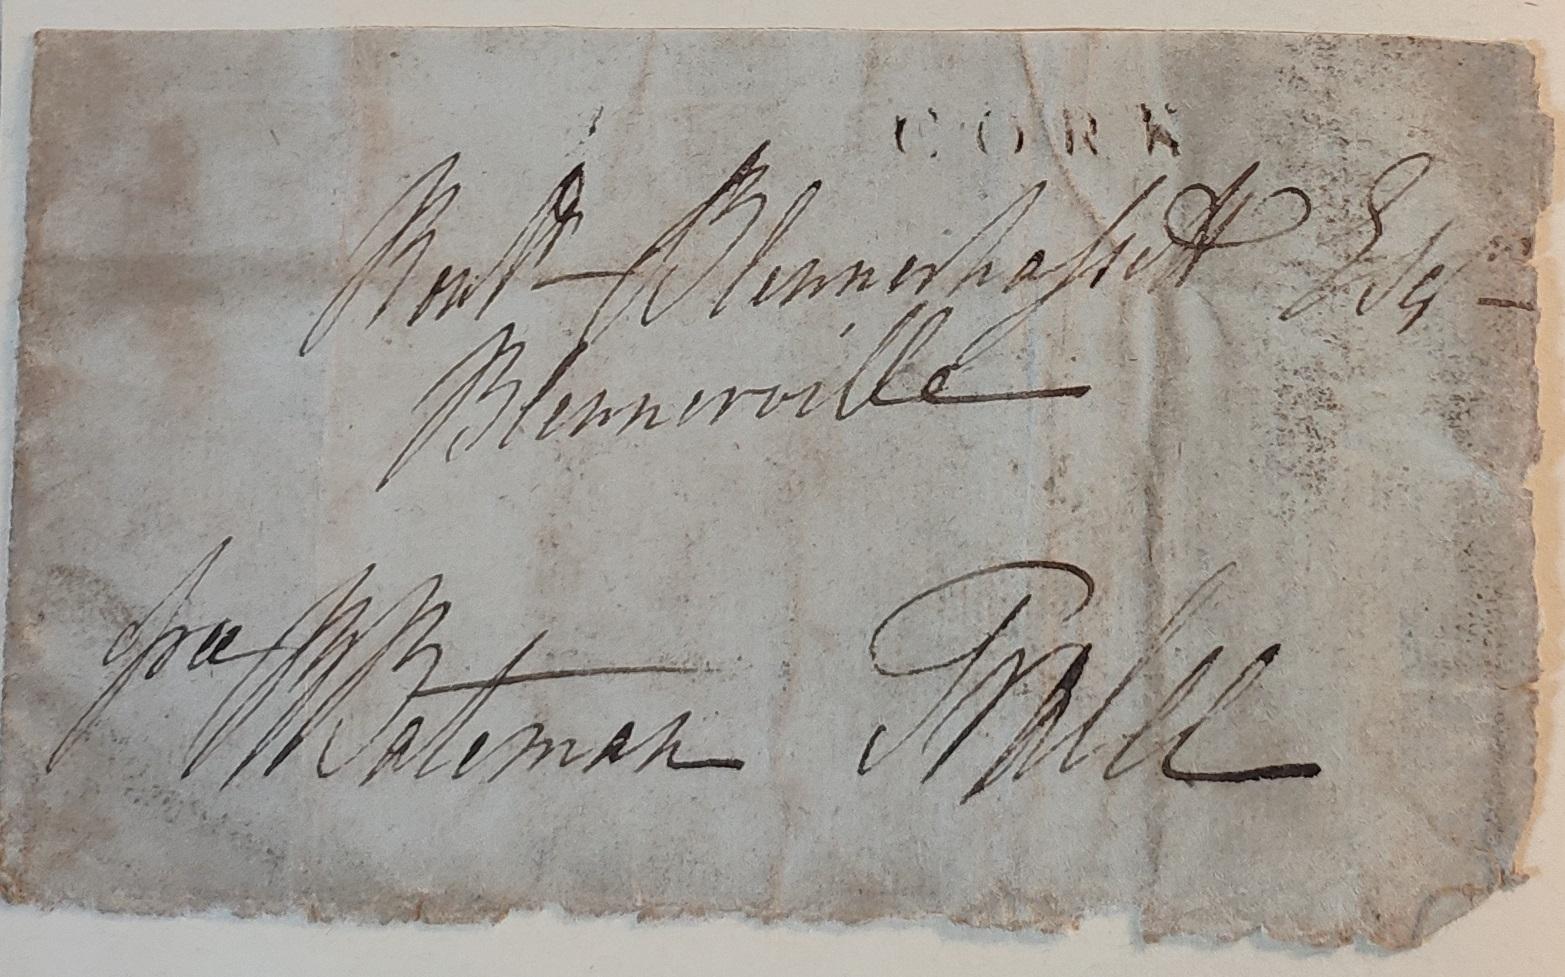 CORK
Rowd. Blennerhassett Esq
Blennerville
free
R Bateman Tralee